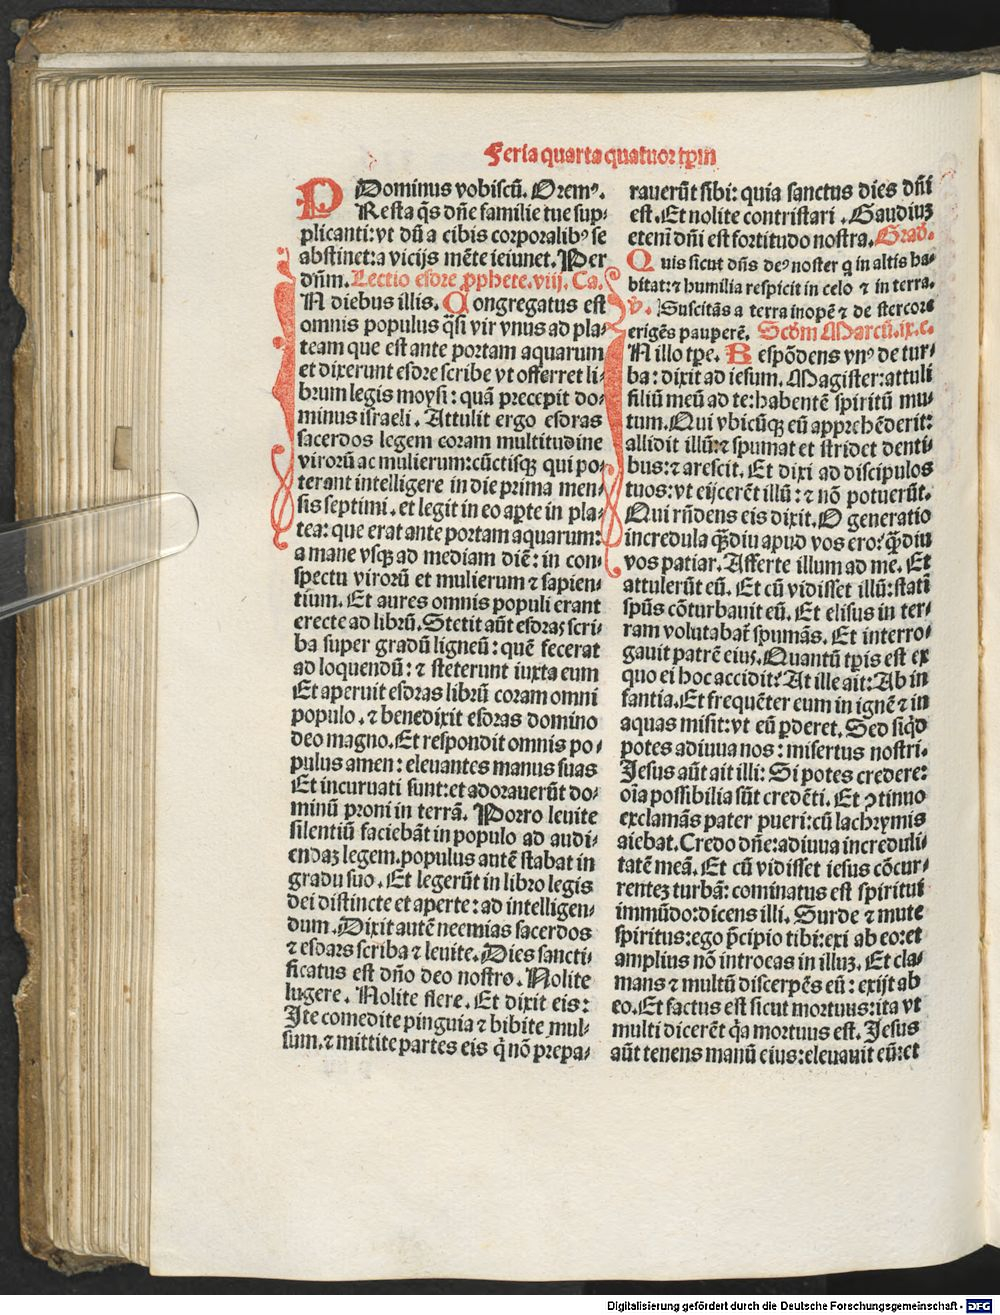 Feria quarta quatuor tp̄m
P Dominus vobiscū. Oremꝰ.
Resta q̄s dn̄e familie tue sup-
plicanti: vt dū a cibis corporalibꝰ se
abstinet: a vicijs mēte ieiunet. Per
dn̄m. Lectio esdre ꝓphete. viij. Ca.
IN diebus illis. Congregatus est
omnis populus q̄si vir vnus ad pla-
team que est ante portam aquarum
et dixerunt esdre scribe vt offerret li-
brum legis moysi: quā precepit do-
minus israeli. Attulit ergo esdras
sacerdos legem coram multitudine
virorū ac mulierum: cūctisqꝫ qui po-
terant intelligere in die prima men-
sis septimi. et legit in eo aꝑte in pla-
tea: que erat ante portam aquarum:
a mane vsqꝫ ad mediam diē: in con-
spectu virorū et mulierum ⁊ sapien-
tium. Et aures omnis populi erant
erecte ad librū. Stetit aūt esdras scri-
ba super gradū ligneū: quē fecerat
ad loquendū: ⁊ steterunt iuxta eum
Et aperuit esdras librū coram omni
populo. ⁊ benedixit esdras domino
deo magno. Et respondit omnis po-
pulus amen: eleuantes manus suas
Et incuruati sunt: et adorauerūt do-
minū proni in terrā. Porro leuite
silentiū faciebāt in populo ad audi-
endaꝫ legem. populus autē stabat in
gradu suo. Et legerūt in libro legis
dei distincte et aperte: ad intelligen-
dum. Dixit autē neemias sacerdos
⁊ esdars scriba ⁊ leuite. Dies sancti-
ficatus est dn̄o deo nostro. Nolite
lugere. Nolite flere. Et dixit eis:
Ite comedite pinguia ⁊ bibite mul-
sum. ⁊ mittite partes eis q̄ nō prepa-
rauerūt sibi: quia sanctus dies dn̄i
est. Et nolite contristari. Gaudiuꝫ
etenī dn̄i est fortitudo nostra. Grad.
Quis sicut dn̄s deꝰ noster q̄ in altis ha-
bitat: ⁊ humilia respicit in celo ⁊ in terra.
V. Suscitās a terra inopē ⁊ de stercore
erigēs pauperē. Scd̄m Marcū. ix. c.
IN illo tp̄e. Respōdens vnꝰ de tur-
ba: dixit ad iesum. Magister: attuli
filiū meū ad te: habentē spiritū mu-
tum. Qui vbicūqꝫ eū apprehēderit:
allidit illū: ⁊ spumat et stridet denti-
bus: ⁊ arescit. Et dixi ad discipulos
tuos: vt eijcerēt illū: ⁊ nō potuerūt.
Qui rn̄dens eis dixit. O generatio
incredula qꝫdiu apud vos ero? qꝫdiu
vos patiar. Afferte illum ad me. Et
attulerūt eū. Et cū vidisset illū: statī
spūs cōturbauit eū. Et elisus in ter-
ram volutabat̄ spumās. Et interro-
gauit patrē eius. Quantū tp̄is est ex
quo ei hoc accidit? At ille ait: Ab in
fantia. Et frequēter eum in ignē ⁊ in
aquas misit: vt eū ꝑderet. Sed siqd̄
potes adiuua nos: misertus nostri.
Jesus aūt ait illi: Si potes credere:
oīa possibilia sūt credēti. Et ꝯtinuo
exclamās pater pueri: cū lachrymis
aiebat. Credo dn̄e: adiuua increduli-
tatē meā. Et cū vidisset iesus cōcur-
renteꝫ turbā: cominatus est spiritui
immūdo: dicens illi. Surde ⁊ mute
spiritus: ego p̄cipio tibi: exi ab eo: et
amplius nō introeas in illuꝫ. Et cla-
mans ⁊ multū discerpēs eū: exijt ab
eo. Et factus est sicut mortuus: ita vt
multi dicerēt q̄a mortuus est. Jesus
aūt tenens manū eius: eleuauit eū: et
Digitalisierung gefördert durch die Deutsche Forschungsgemeinschaft - DFG